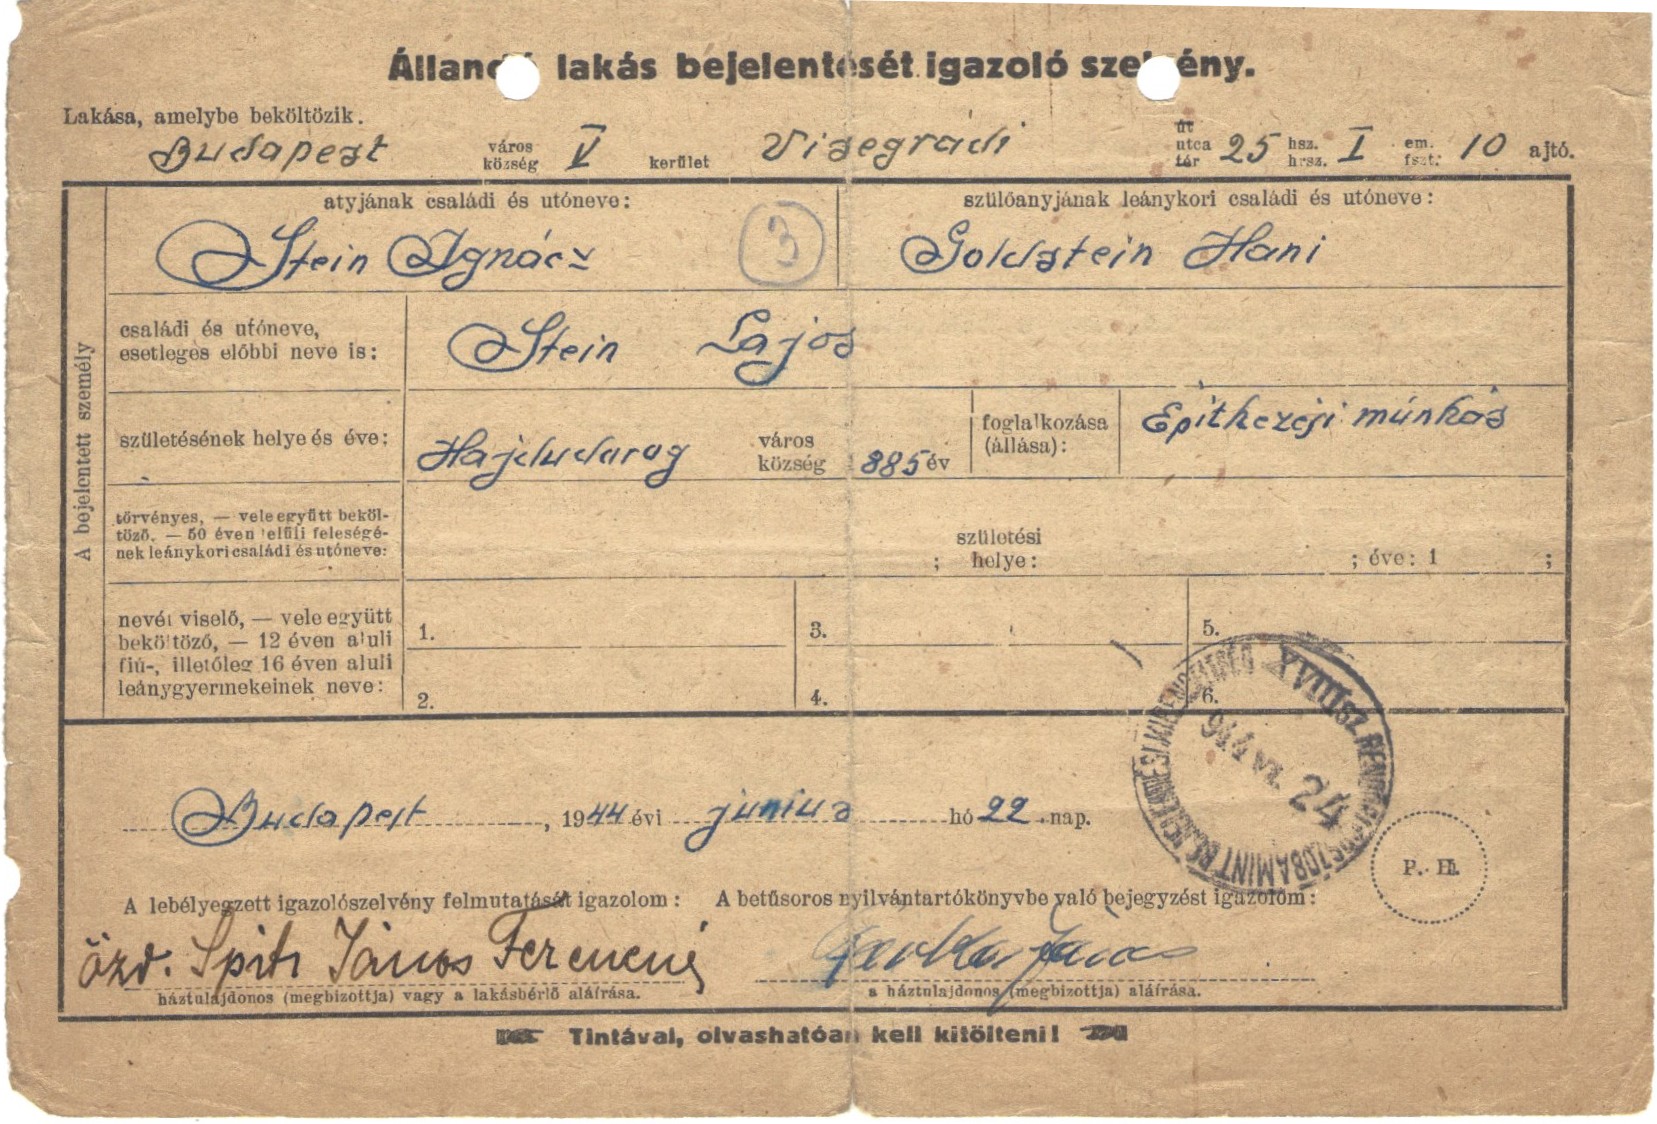 Állandó lakás bejelentését igazoló szelvény.
Lakása, amelybe beköltözik.
Budapest város község V kerület Visegrádi út utca tér 25 hsz. hrsz. I em. fszt. 10 ajtó.
A bejelentett személy
atyjának családi és utóneve: szülőanyjának leánykori családi és utóneve:
Stein Ignácz 3 Goldstein Hani
családi és utóneve,
esetleges előbbi neve is: Stein Lajos
születésének helye és éve: Hajdudorog város község 885 év foglalkozása (állása): Épitkezési múnkás
törvényes, — vele együtt beköl-
töző. — 50 éven felüli feleségé-
nek leánykori családi és utóneve: ; születési helye: ; éve: 1 ;
nevét viselő, — vele együtt
beköltöző, — 12 éven aluli
fiú-, illetőleg 16 éven aluli
leánygyermekeinek neve:
1. 3. 5.
2. 4. 6.
944 VI. 24
Budapest, 1944 évi junius hó 22 nap.
P. H.
A lebélyegzett igazolószelvény felmutatását igazolom: A betűsoros nyilvántartókönyvbe való bejegyzést igazolom:
özv. János Ferencné
háztulajdonos (megbizottja) vagy a lakásbérlő aláírása. a háztulajdonos (megbizottja) aláírása.
Tintával, olvashatóan kell kitölteni!